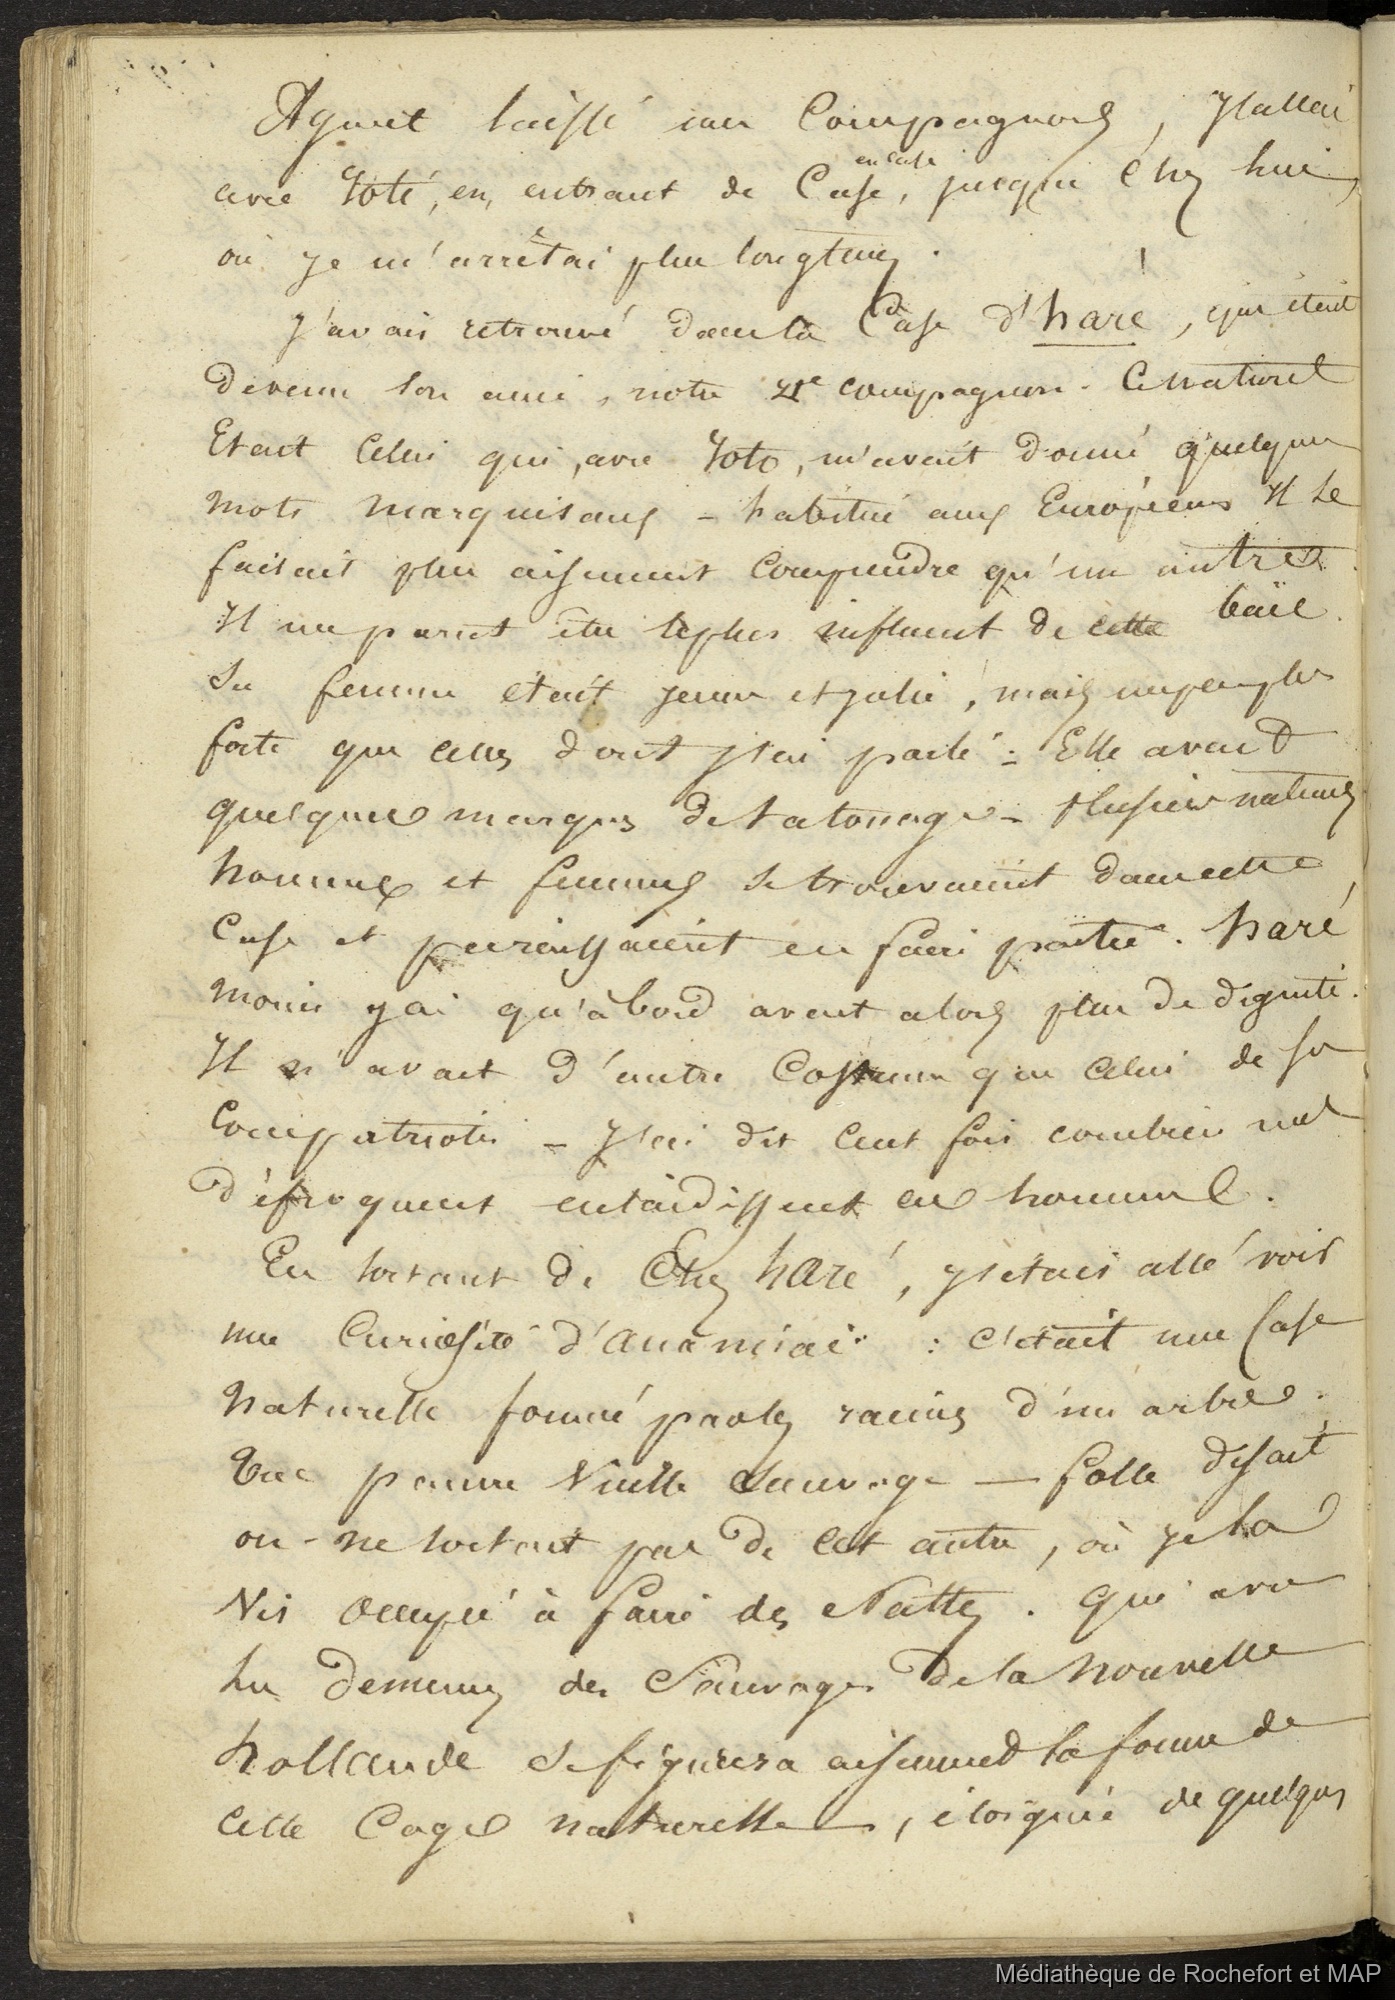 Ayant laissé mes Compagnons, J'allai
avec Yoté, en, entrant de Case, en Case jusque chez lui,
où je m'arrêtai plus longtems.
J'avais retrouvé dans la Case d'haré, qui était
devenu son ami, notre compagnon. Ce naturel
Etait Celui qui, avec Yoto, m'avait donné quelques
mots marquisans - habitué aux Européens Il se
faisait plus aisément Comprendre qu'un autre.
Il me parut être le plus influent de cette baie.
Sa femme était jeune et jolie, mais un peu plus
forte que celles dont j'ai parlé: Elle avait
quelques marques de tatouage - Plusieurs naturels
hommes et femmes se trouvaient dans cette
Case et paraissaient en faire partie. haré
moins gai qu'à bord avait alors plus de dignité.
Il n'avait d'autre Costume que Celui de ses
Compatriotes - J'ai dit Cent fois combien nos
défroques enlaidissent ces hommes.
En sortant de Chez haré, j'étais allé voir
une Curiosité d'Anamiai : C'était une Case
naturelle formé par les racines d'un arbre.
Une pauvre Vieille Sauvage — folle disait
on - ne sortait pas de Cet antre, où je la
Vis occupé à faire des Nattes. Qui a vu
les demeures des Sauvages de la Nouvelle
hollande se figurera aisément la forme de
Cette Cage naturelle, éloignée de quelques
Médiathèque de Rochefort et MAP